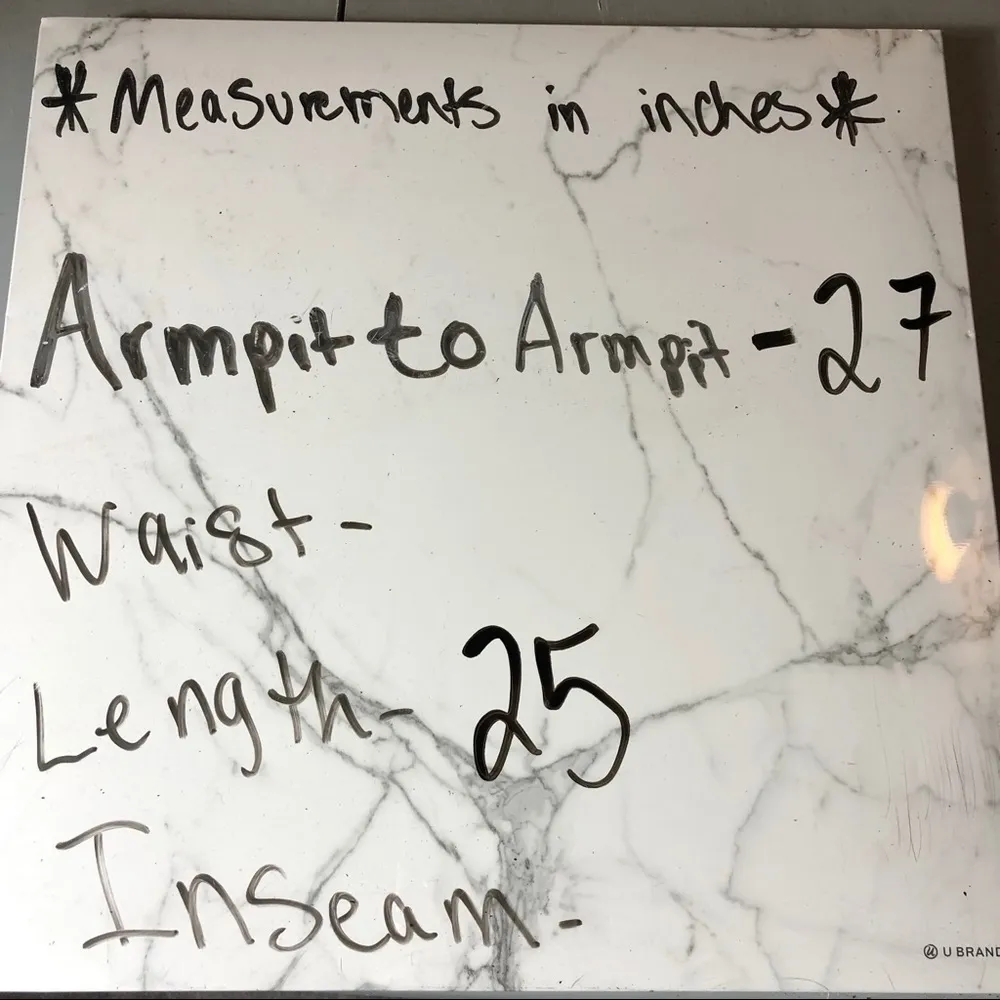 *Measurements in inches*
Armpit to Armpit - 27
Waist -
Length - 25
Inseam -
U BRAND